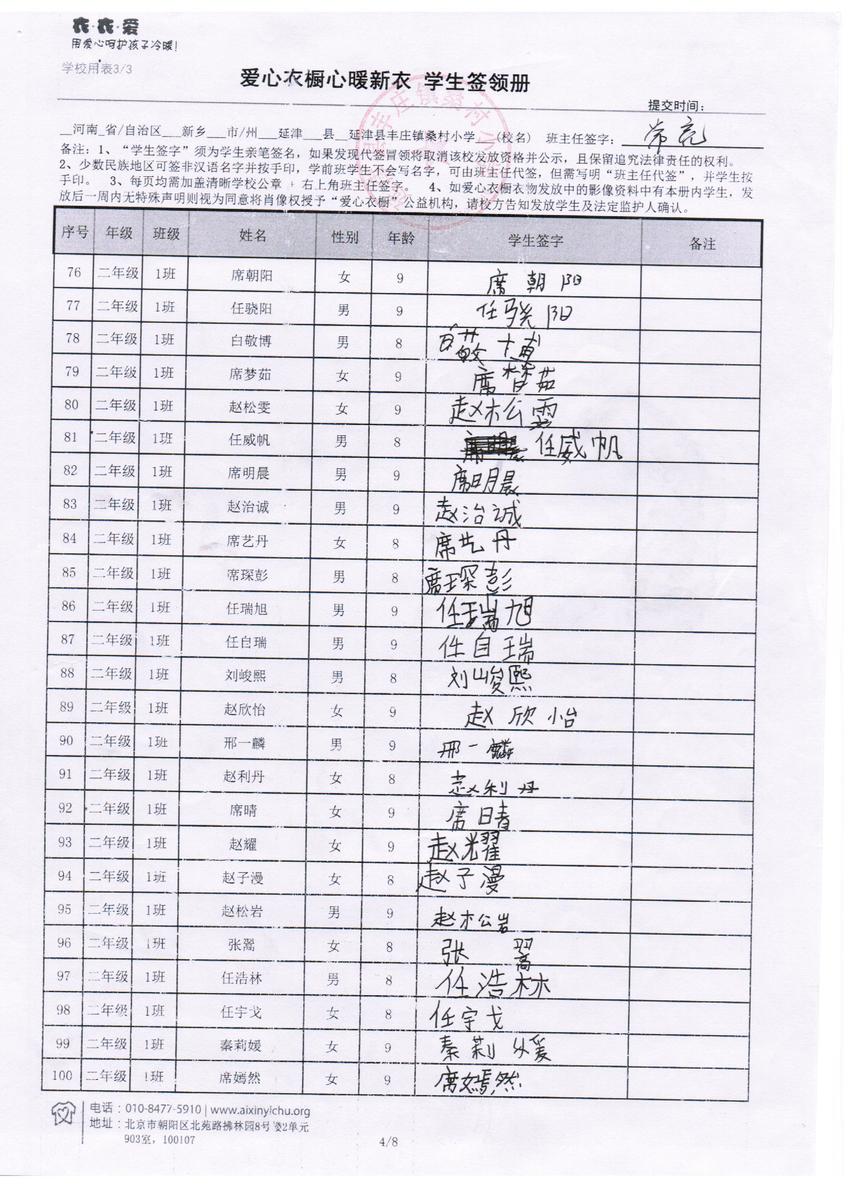 衣·衣·爱
用爱心呵护孩子冷暖!
学校用表3/3
爱心衣橱心暖新衣 学生签领册
提交时间：
__河南_省/自治区___新乡___市/州___延津___县__延津县丰庄镇桑村小学___(校名) 班主任签字：常亮
备注：1、“学生签字”须为学生亲笔签名，如果发现代签冒领将取消该校发放资格并公示，且保留追究法律责任的权利。
2、少数民族地区可签非汉语名字并按手印，学前班学生不会写名字，可由班主任代签，但需写明“班主任代签”，并学生按
手印。 3、每页均需加盖清晰学校公章 + 右上角班主任签字。 4、如爱心衣橱衣物发放中的影像资料中有本册内学生，发
放后一周内无特殊声明则视为同意将肖像权授予“爱心衣橱”公益机构，请校方告知发放学生及法定监护人确认。
序号 年级 班级 姓名 性别 年龄 学生签字 备注
76 二年级 1班 席朝阳 女 9 席朝阳
77 二年级 1班 任骁阳 男 9 任骁阳
78 二年级 1班 白敬博 男 8 白敬博
79 二年级 1班 席梦茹 女 9 席梦茹
80 二年级 1班 赵松雯 女 9 赵松雯
81 二年级 1班 任威帆 男 8 任威帆
82 二年级 1班 席明晨 男 9 席明晨
83 二年级 1班 赵治诚 男 9 赵治诚
84 二年级 1班 席艺丹 女 8 席艺丹
85 二年级 1班 席琛彭 男 8 席琛彭
86 二年级 1班 任瑞旭 男 9 任瑞旭
87 二年级 1班 任自瑞 男 9 任自瑞
88 二年级 1班 刘峻熙 男 8 刘峻熙
89 二年级 1班 赵欣怡 女 9 赵欣怡
90 二年级 1班 邢一麟 男 9 邢一麟
91 二年级 1班 赵利丹 女 8 赵利丹
92 二年级 1班 席晴 女 9 席晴
93 二年级 1班 赵耀 女 9 赵耀
94 二年级 1班 赵子漫 女 8 赵子漫
95 二年级 1班 赵松岩 男 9 赵松岩
96 二年级 1班 张翯 女 8 张翯
97 二年级 1班 任浩林 男 8 任浩林
98 二年级 1班 任宇戈 女 8 任宇戈
99 二年级 1班 秦莉媛 女 9 秦莉媛
100 二年级 1班 席嫣然 女 9 席嫣然
电话：010-8477-5910 | www.aixinyichu.org
地址：北京市朝阳区北苑路拂林园8号楼2单元
903室，100107
4/8